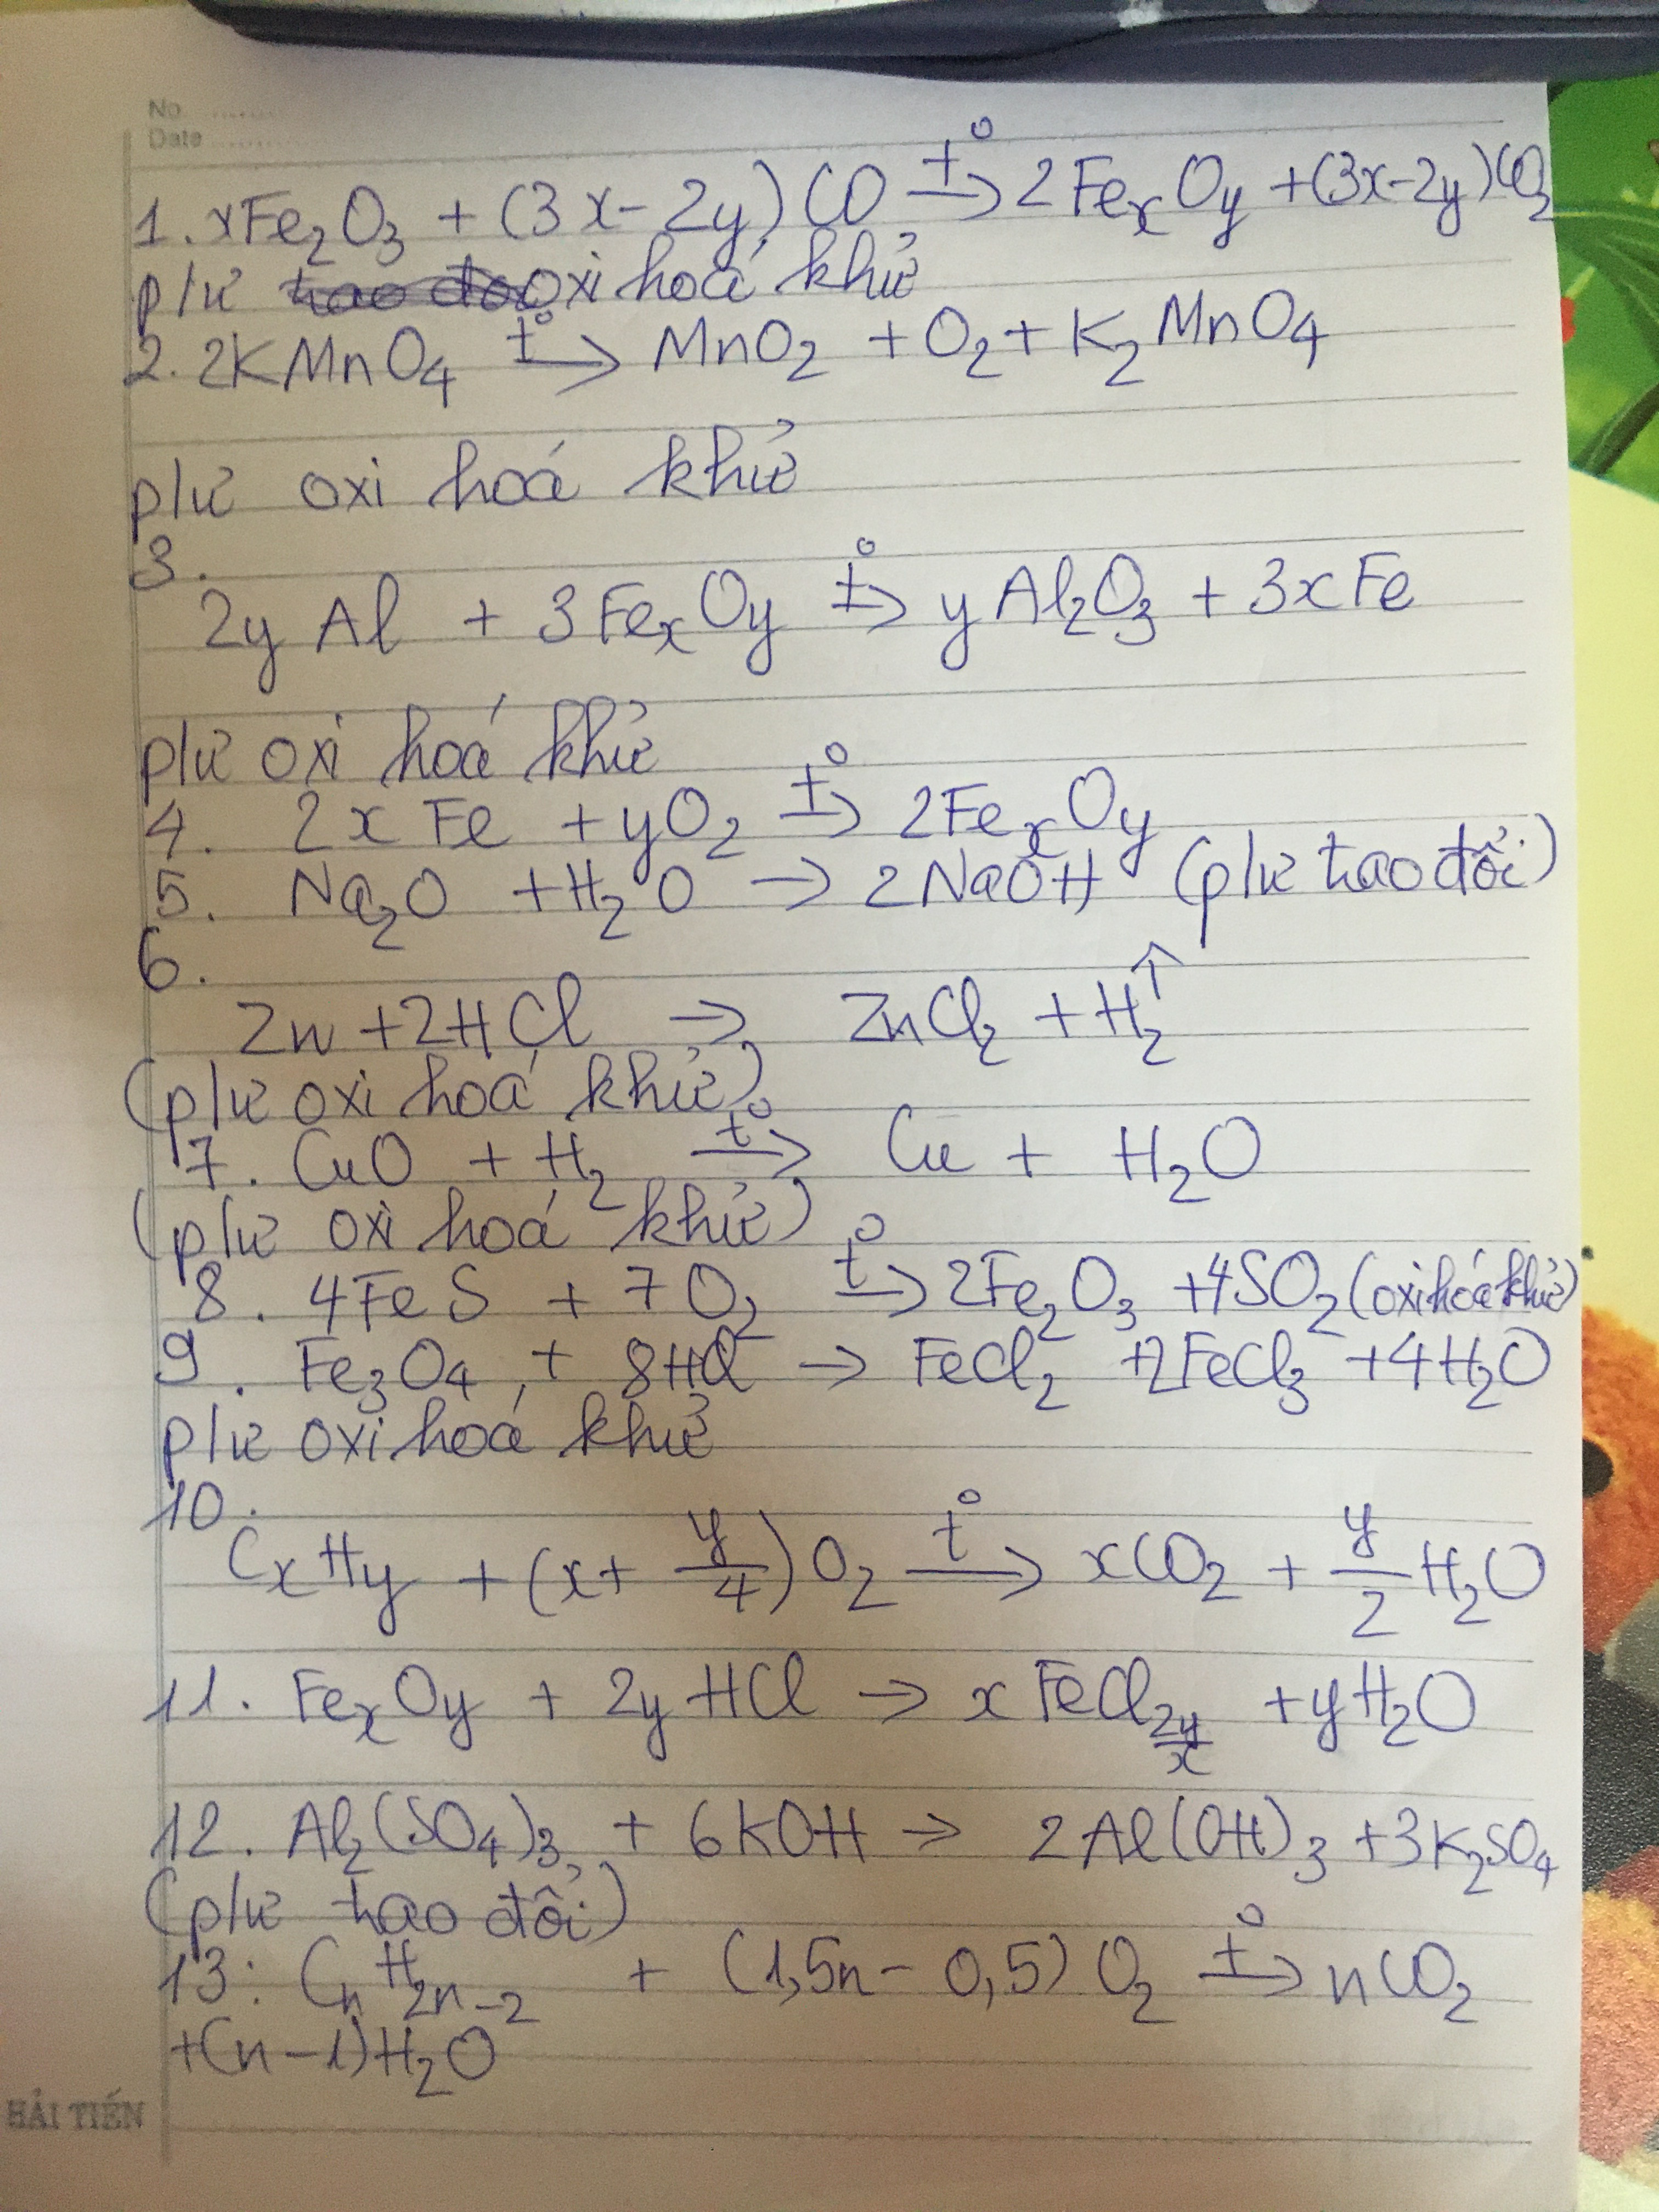 No. ........
Date ..............
1. xFe₂O₃ + (3x-2y)CO –t°→ 2FeₓOy + (3x-2y)CO₂
p/ư oxi hoá khử
2. 2KMnO₄ –t°→ MnO₂ + O₂ + K₂MnO₄
p/ư oxi hoá khử
3.
2y Al + 3FeₓOy –t°→ yAl₂O₃ + 3xFe
p/ư oxi hoá khử
4. 2x Fe + yO₂ –t°→ 2FeₓOy
5. Na₂O + H₂O → 2NaOH (p/ư trao đổi)
6.
Zn + 2HCl → ZnCl₂ + H₂↑
(p/ư oxi hoá khử)
7. CuO + H₂ –t°→ Cu + H₂O
(p/ư oxi hoá khử)
8. 4FeS + 7O₂ –t°→ 2Fe₂O₃ + 4SO₂ (oxi hoá khử)
9. Fe₃O₄ + 8HCl → FeCl₂ + 2FeCl₃ + 4H₂O
p/ư oxi hoá khử
10.
CₓHy + (x + y/4)O₂ –t°→ xCO₂ + y/2 H₂O
11. FeₓOy + 2yHCl → xFeCl2y/x + yH₂O
12. Al₂(SO₄)₃ + 6KOH → 2Al(OH)₃ + 3K₂SO₄
(p/ư trao đổi)
13: CₙH₂ₙ₋₂ + (1,5n - 0,5)O₂ –t°→ nCO₂
+(n-1)H₂O
HẢI TIẾN